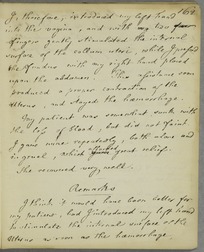 169
I, therefore, introduced my left hand
into the vagina, and with my two
fingers gently stimulated the internal
surface of the collum uteri, while I pressed
the fundus with my right hand placed
upon the abdomen. This friction soon
produced a proper contraction of the
uterus, and stayed the haemorrhage.
My patient was somewhat sunk with
the loss of blood, but did not faint.
I gave wine repeatedly, both alone and
in gruel, which gave relief.
She recovered very well.
Remarks
I think it would have been better for
my patient, had I introduced my left hand
to stimulate the internal surface of the
uterus as soon as the haemorrhage